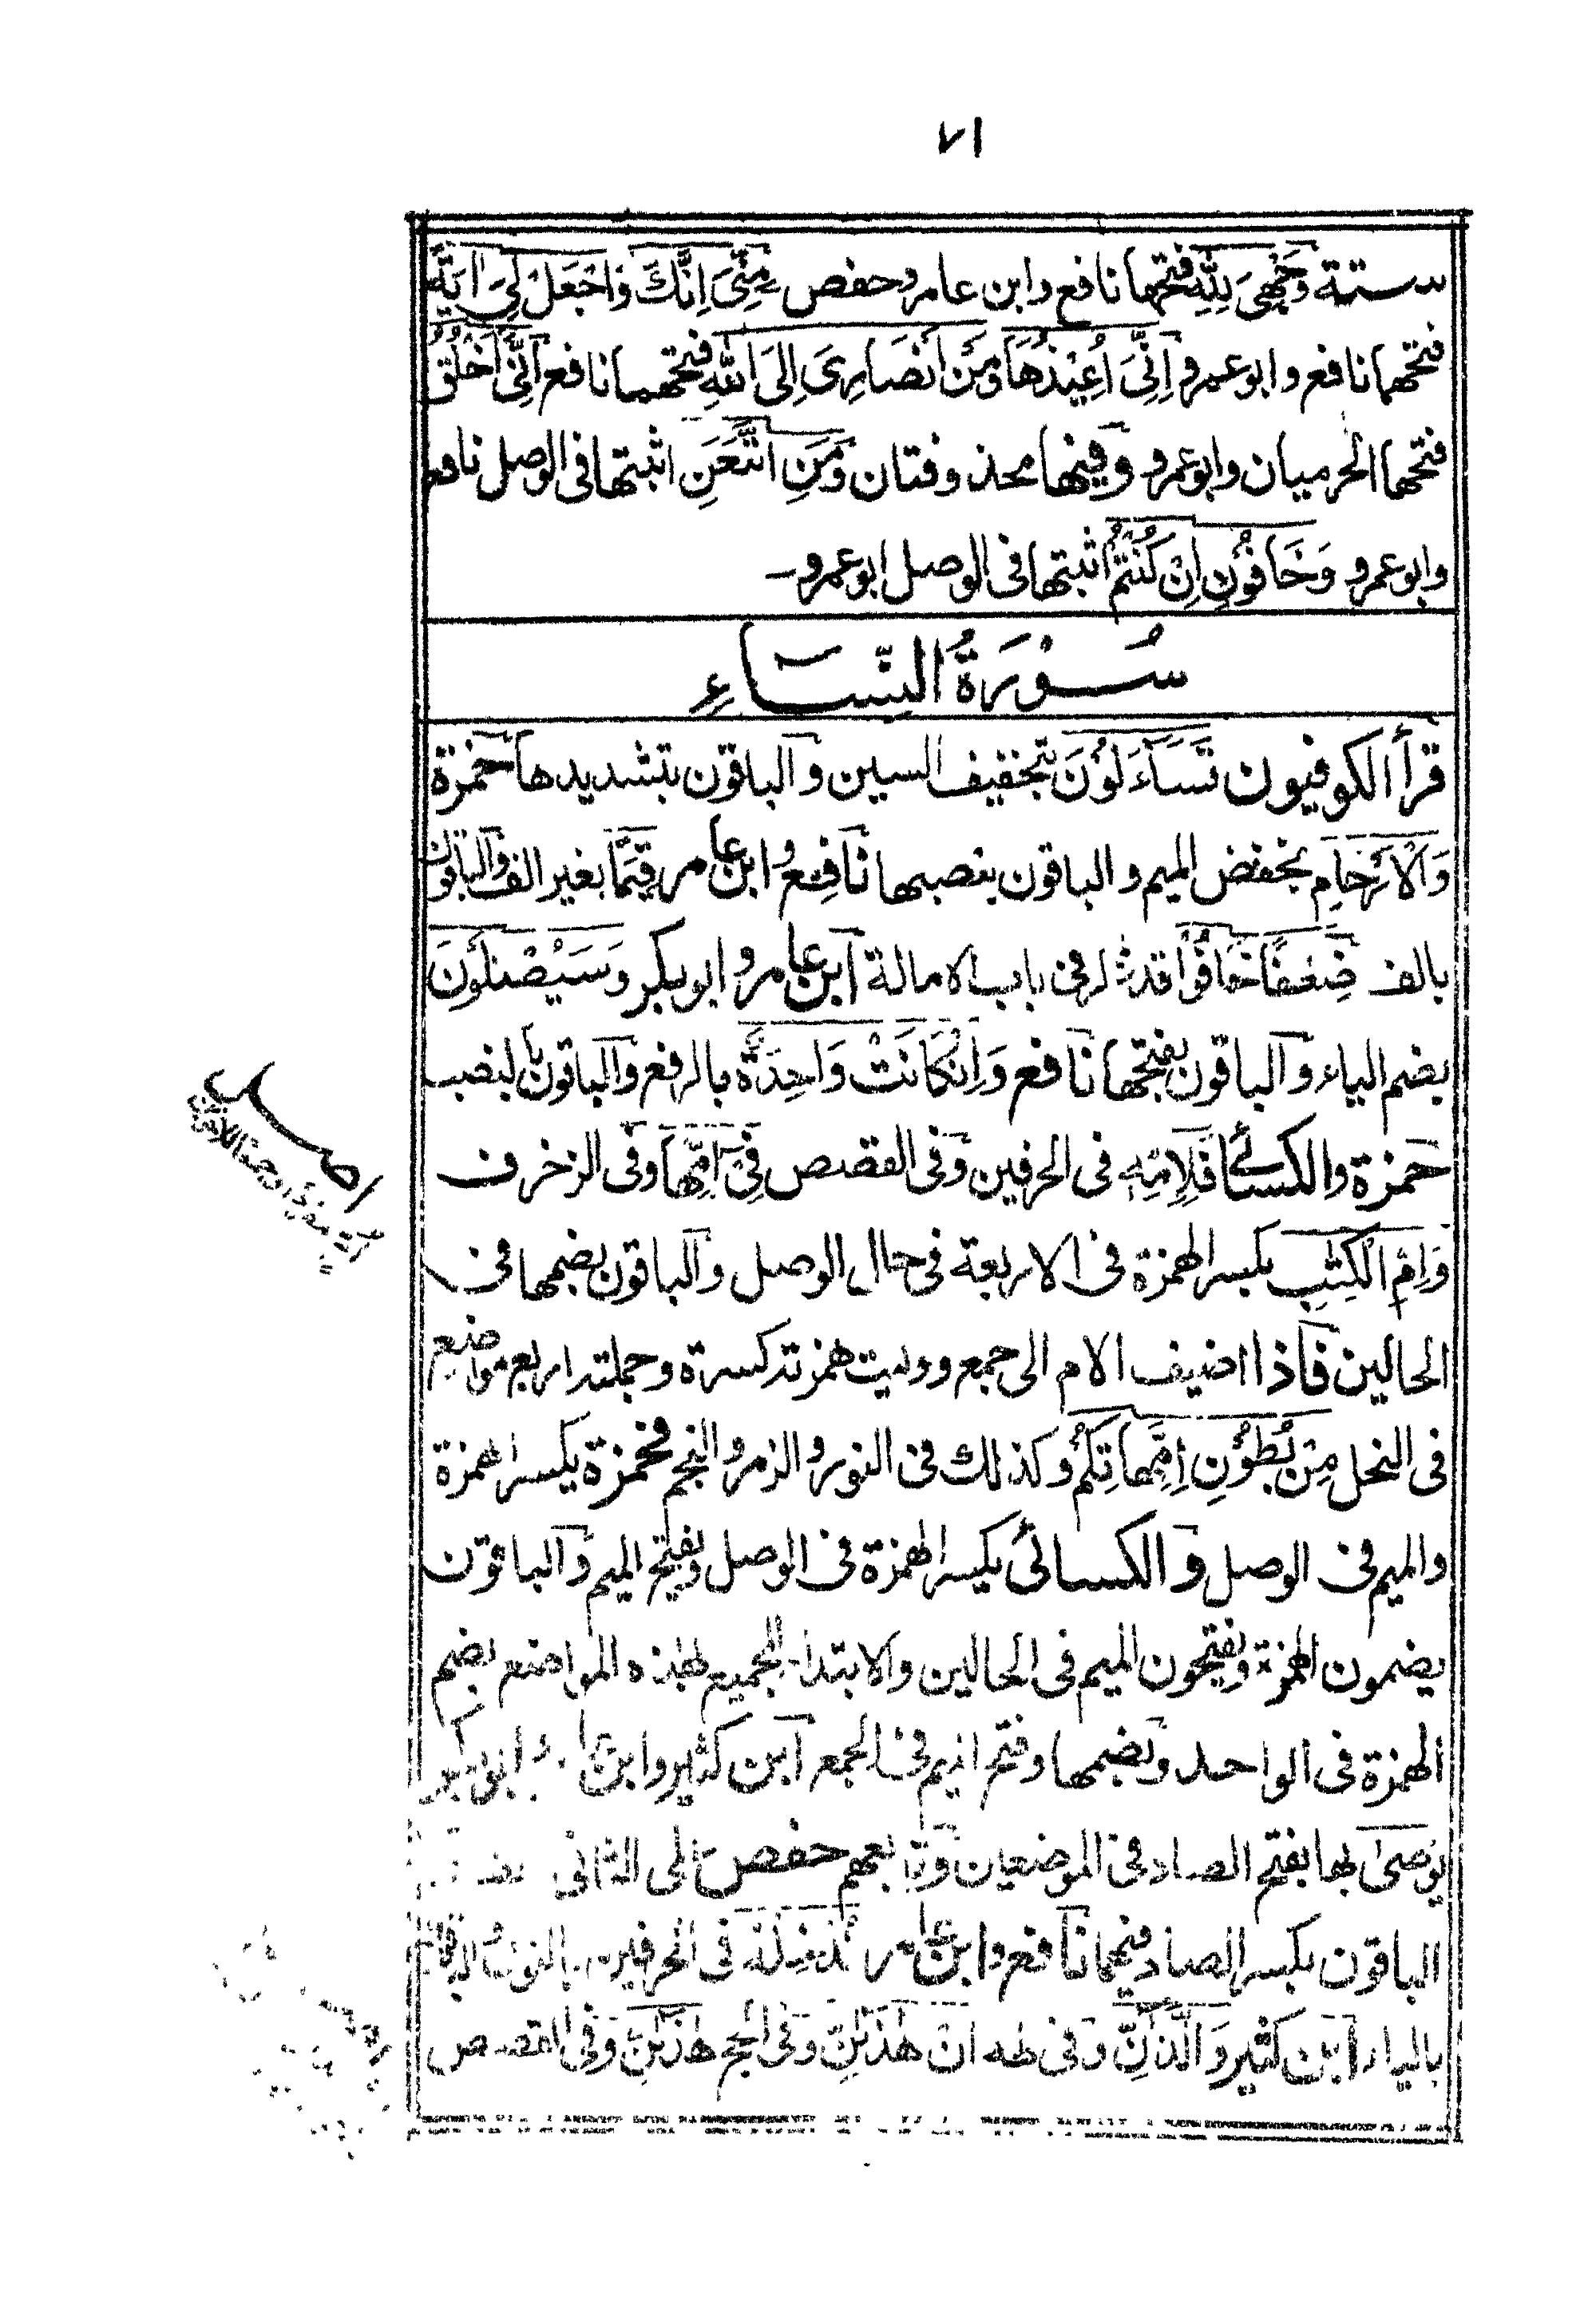 ٧١
ستة وَجْهِيَ لِلّٰهِ فتحها نافع وابن عامر وحفص مِنِّيَ اِنَّكَ وَاجْعَلْ لِيَ اٰيَةً
فتحهما نافع وابو عمرو اِنِّيَ اُعِيْذُهَا وَمَنْ اَنْصَارِيَ اِلَى اللّٰهِ فتحهما نافع اَنِّيَ اَخْلُقُ
فتحها الحرميان وابو عمرو وفيها محذوفتان وَمَنِ اتَّبَعَنِ اثبتها فى الوصل نافع
وابو عمرو وَخَافُوْنِ اِنْ كُنْتُمْ اثبتها فى الوصل ابو عمرو
سُوْرَةُ النِّسَاءِ
قرأ الكوفيون تَسَاءَلُوْنَ بتخفيف السين والباقون بتشديدها حمزة
وَالْاَرْحَامِ بخفض الميم والباقون بنصبها نافع وابن عامر قِيَمًا بغير الف والباقون
بالف ضِعٰفًا خَافُوْا قد ذكر فى باب الامالة ابن عامر وابو بكر وَسَيُصْلَوْنَ
بضم الياء والباقون بفتحها نافع وَاِنْ كَانَتْ وَاحِدَةٌ بالرفع والباقون بالنصب
حمزة والكسائى فَلِاِمِّهِ فى الحرفين وفى القصص فِيْ اِمِّهَا وفى الزخرف
وَاِمِّ الْكِتٰبِ بكسر الهمزة فى الاربعة فى حال الوصل والباقون بضمها فى
الحالين فاذا اضيف الام الى جمع ووليت همزته كسرة وجملته اربع مواضع
فى النحل مِنْ بُطُوْنِ اِمِّهَاتِكُمْ وكذلك فى النور والزمر والنجم فحمزة يكسر الهمزة
والميم فى الوصل والكسائى يكسر الهمزة فى الوصل ويفتح الميم والباقون
يضمون الهمزة ويفتحون الميم فى الحالين والابتداء للجميع لهذه المواضع بضم
الهمزة فى الواحد وبضمها وفتح الميم فى الجمع ابن كثير وابن عامر وابو بكر
يُوْصٰى بها بفتح الصاد فى الموضعين وتابعهم حفص على الثانى
الباقون بكسر الصاد فيهما نافع وابن عامر نُدْخِلْهُ فى الحرفين بالنون والباقون
بالياء ابن كثير وَالَّذٰنِّ وفى طه اِنْ هٰذٰنِّ وفى الحج هٰذٰنِّ وفى القصص